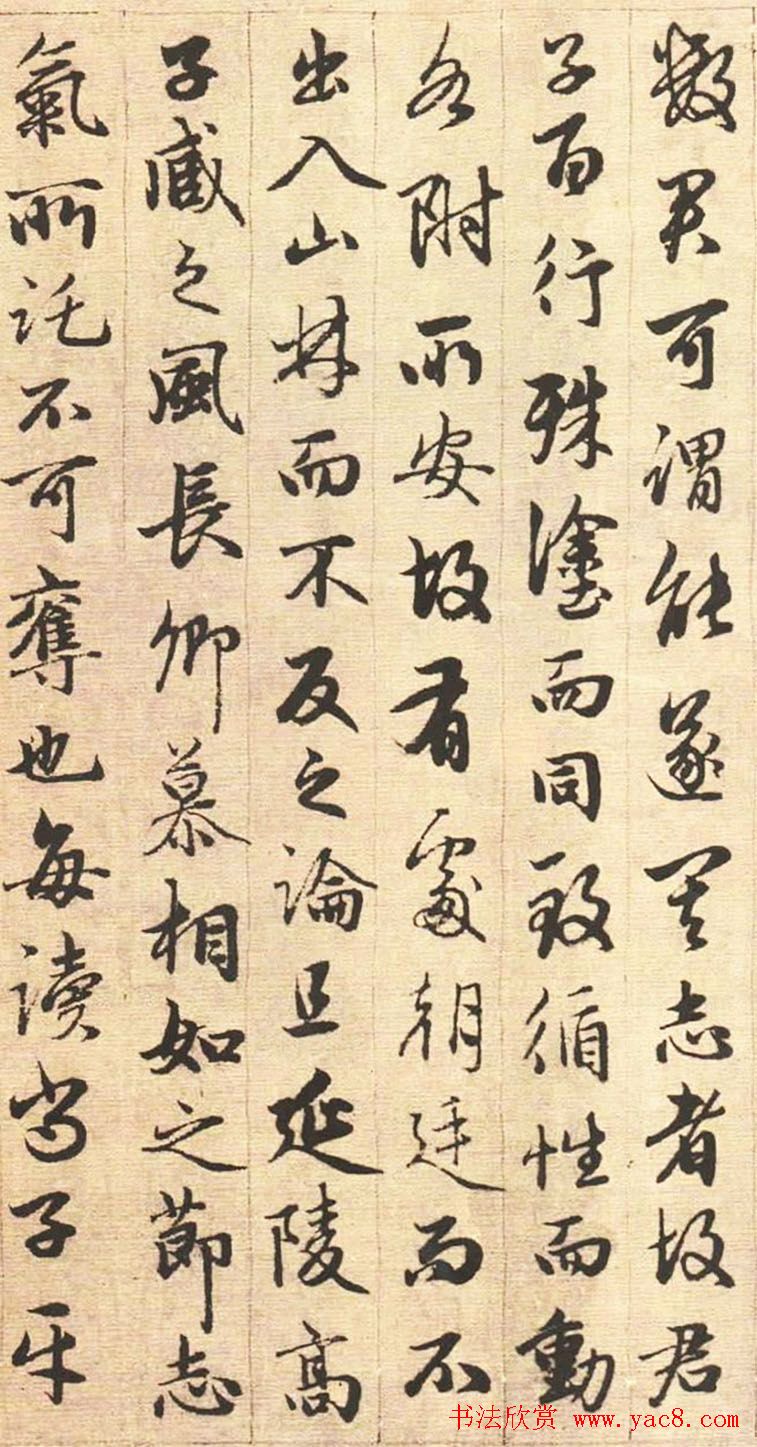 數君可謂能遂其志者故君
子百行殊塗而同致循性而動
各附所安故有處朝廷而不
出入山林而不反之論且延陵高
子臧之風長卿慕相如之節志
氣所託不可奪也每讀尚子平
书法欣赏 www.yac8.com